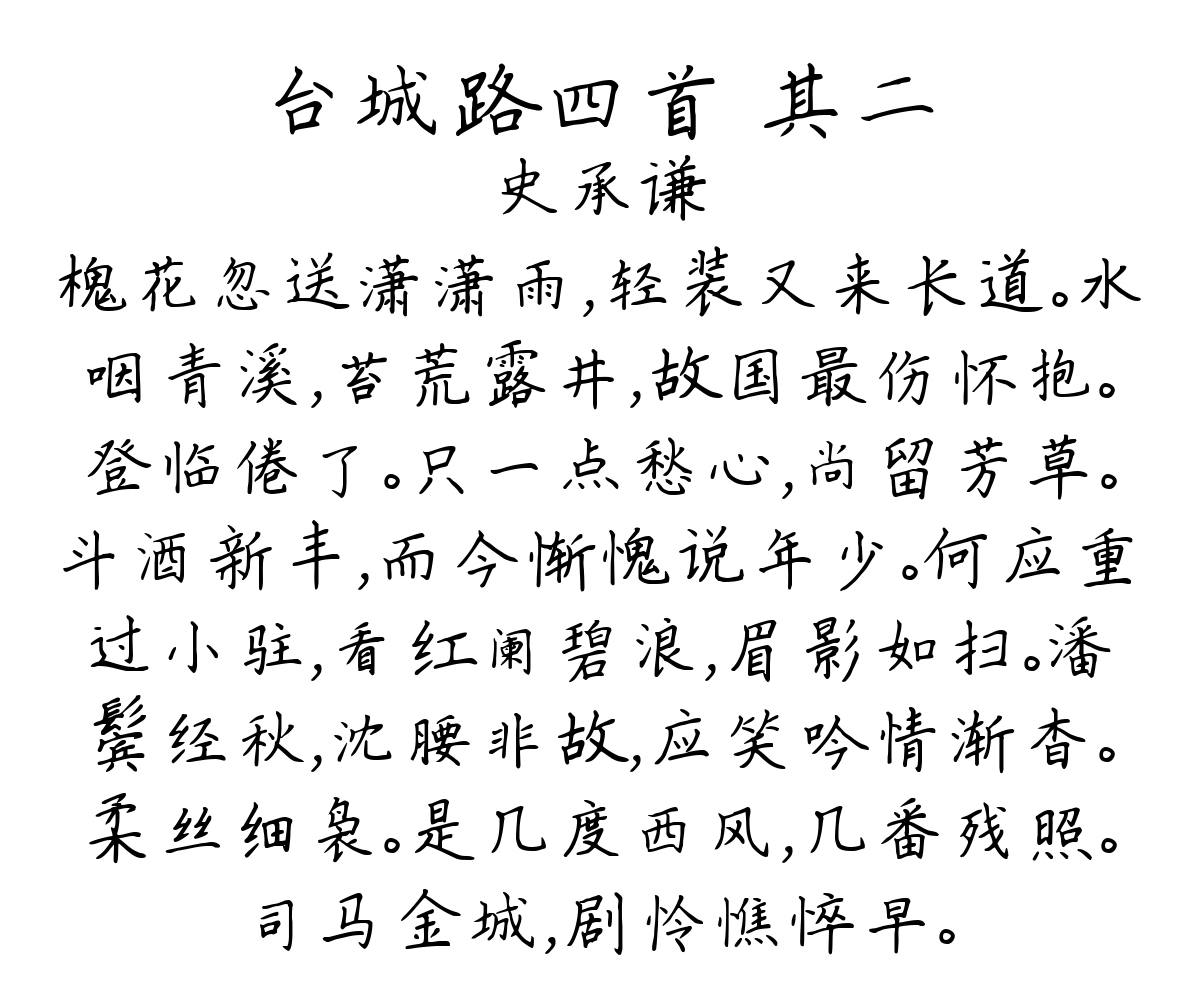 台城路四首 其二
史承谦
槐花忽送潇潇雨,轻装又来长道。水
咽青溪,苔荒露井,故国最伤怀抱。
登临倦了。只一点愁心,尚留芳草。
斗酒新丰,而今惭愧说年少。何应重
过小驻,看红阑碧浪,眉影如扫。潘
鬓经秋,沈腰非故,应笑吟情渐杳。
柔丝细袅。是几度西风,几番残照。
司马金城,剧怜憔悴早。